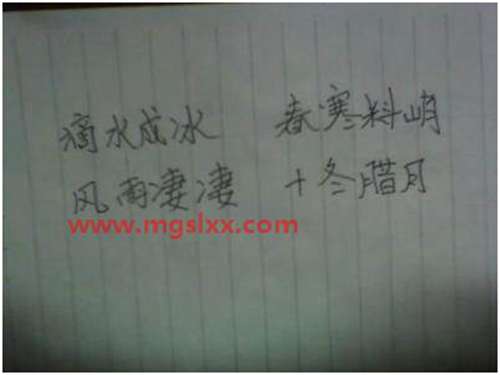 滴水成冰 春寒料峭
风雨凄凄 十冬腊月
www.mgslxx.com